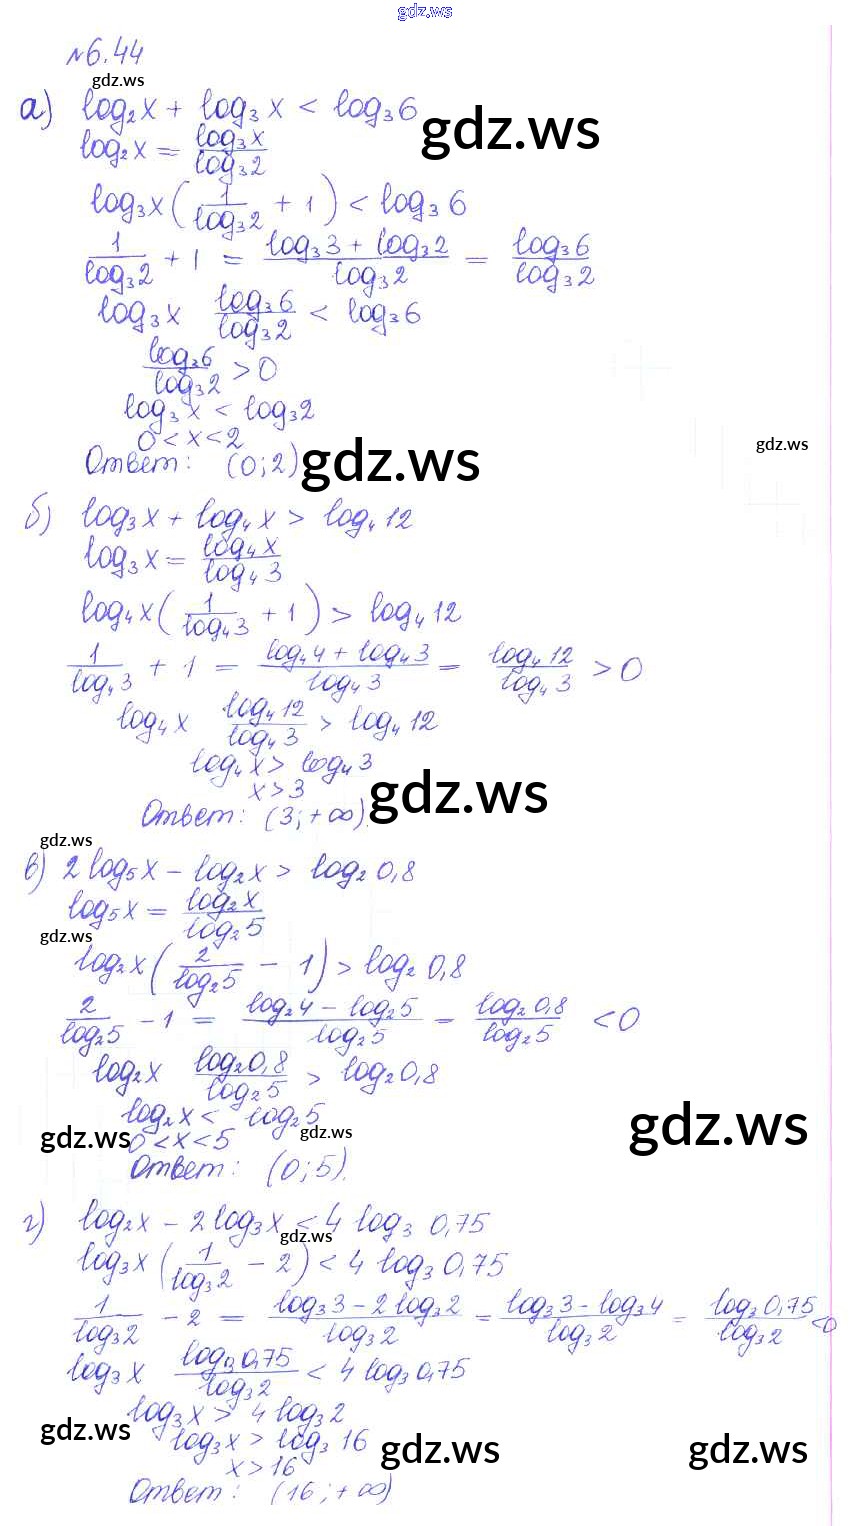 gdz.ws
№6.44
gdz.ws
а) log₂x + log₃x < log₃6
gdz.ws
log₂x = log₃x / log₃2
log₃x (1/log₃2 + 1) < log₃6
1/log₃2 + 1 = (log₃3 + log₃2)/log₃2 = log₃6/log₃2
log₃x log₃6/log₃2 < log₃6
log₃6/log₃2 > 0
log₃x < log₃2
0 < x < 2
gdz.ws
Ответ: (0; 2)
gdz.ws
б) log₃x + log₄x > log₄12
log₃x = log₄x / log₄3
log₄x (1/log₄3 + 1) > log₄12
1/log₄3 + 1 = (log₄4 + log₄3)/log₄3 = log₄12/log₄3 > 0
log₄x log₄12/log₄3 > log₄12
log₄x > log₄3
x > 3
gdz.ws
Ответ: (3; +∞).
gdz.ws
в) 2log₅x − log₂x > log₂0,8
log₅x = log₂x / log₂5
gdz.ws
log₂x (2/log₂5 − 1) > log₂0,8
2/log₂5 − 1 = (log₂4 − log₂5)/log₂5 = log₂0,8/log₂5 < 0
log₂x log₂0,8/log₂5 > log₂0,8
log₂x < log₂5
gdz.ws
gdz.ws
0 < x < 5
gdz.ws
Ответ: (0; 5).
г) log₂x − 2log₃x < 4 log₃0,75
gdz.ws
log₃x (1/log₃2 − 2) < 4 log₃0,75
1/log₃2 − 2 = (log₃3 − 2log₃2)/log₃2 = (log₃3 − log₃4)/log₃2 = log₃0,75/log₃2 < 0
log₃x log₃0,75/log₃2 < 4 log₃0,75
log₃x > 4 log₃2
gdz.ws
log₃x > log₃16
gdz.ws
gdz.ws
x > 16
Ответ: (16; +∞)